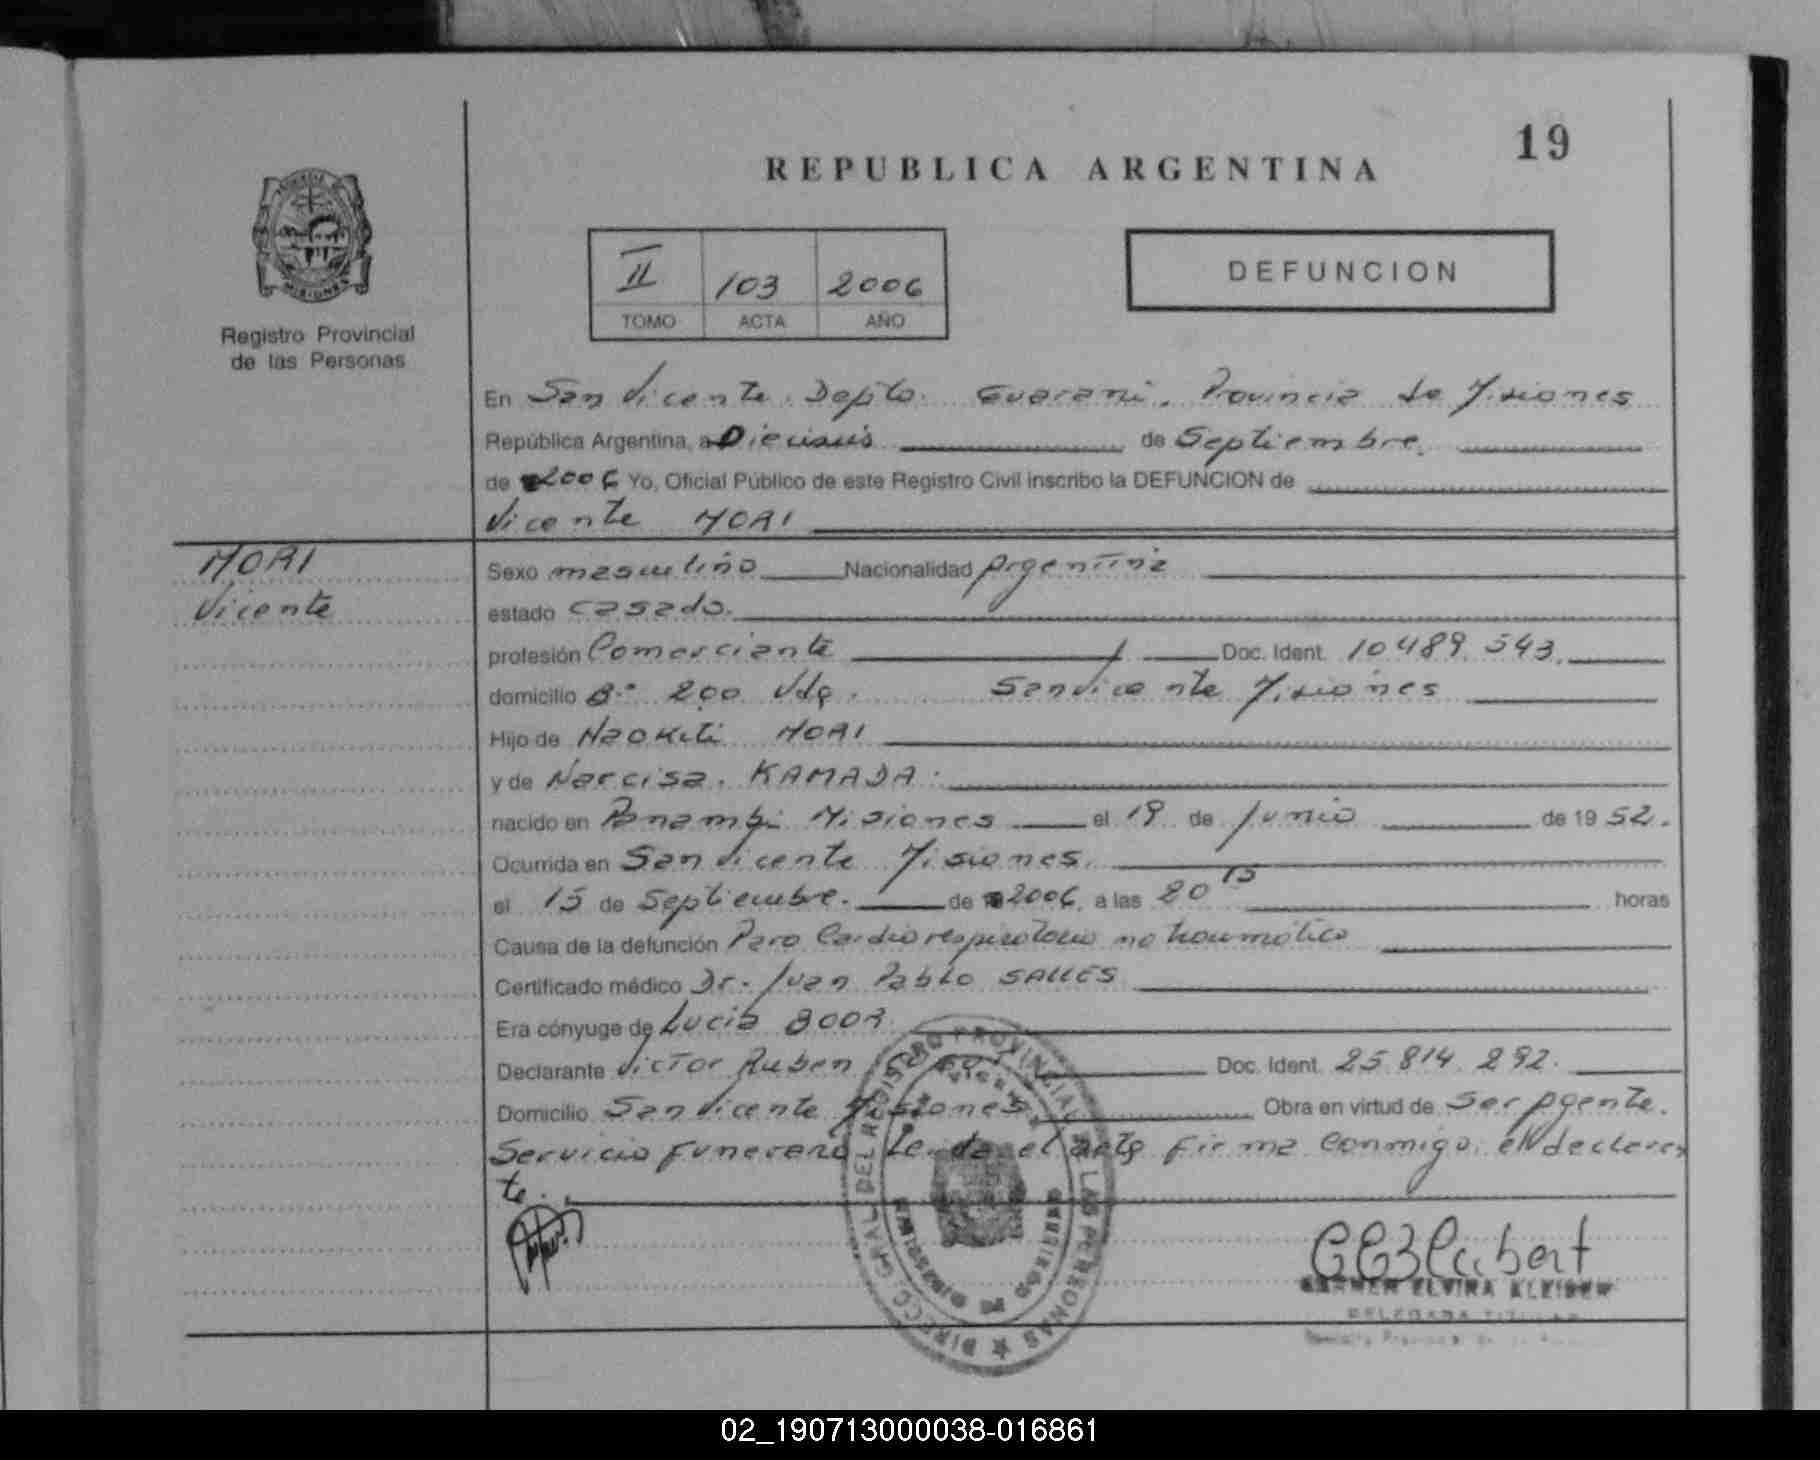 19
REPUBLICA ARGENTINA
PROVINCIA DE
MISIONES
Registro Provincial
de las Personas
II 103 2006
TOMO ACTA AÑO
DEFUNCION
En San Vicente Depto. Guarani. Provincia de Misiones
República Argentina, a Dieciseis de Septiembre.
de 2006 Yo, Oficial Público de este Registro Civil inscribo la DEFUNCION de
Vicente MORI
MORI
Vicente
Sexo masculino Nacionalidad Argentina
estado casado.
profesión Comerciante Doc. Ident. 10489.543.
domicilio B.º 200 Vdas. San Vicente Misiones
Hijo de Naokiti MORI
y de Narcisa. KAMADA.
nacido en Panambi Misiones el 19 de Junio de 1952.
Ocurrida en San Vicente Misiones.
el 15 de Septiembre. de 2006, a las 20 15 horas
Causa de la defunción Paro Cardiorespiratorio no traumático
Certificado médico Dr. Juan Pablo SALLES
Era cónyuge de Lucia
Declarante Victor Ruben Doc. Ident. 25.814.292.
Domicilio San Vicente Misiones. Obra en virtud de Ser Agente.
Servicio funerario Leida el acta firma conmigo el declaran
te.
DIRECC. GRAL. DEL REGISTRO PROVINCIAL DE LAS PERSONAS
CARMEN ELVIRA KLEIBER
DELEGADA TITULAR
02_190713000038-016861